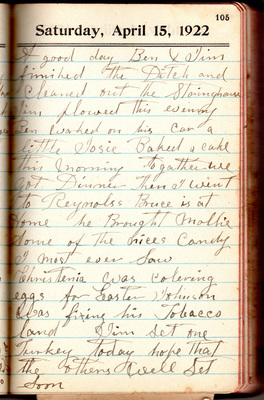 105
Saturday, April 15, 1922
A good day Ben & Jim
finished the Ditch and
Cleaned out the
Jim plowed this evening
Ben worked on his car a
little Josie Baked a cake
this Morning together we
got Dinner then I went
to Reynolds Bruce is at
home he Brought Mollie
Some of the nices Candy
I most ever Saw
Christenia was colering
eggs for Easter Johnson
was fixing his Tobacco
land Jim Set one
Turkey today hope that
the others will Set
Soon